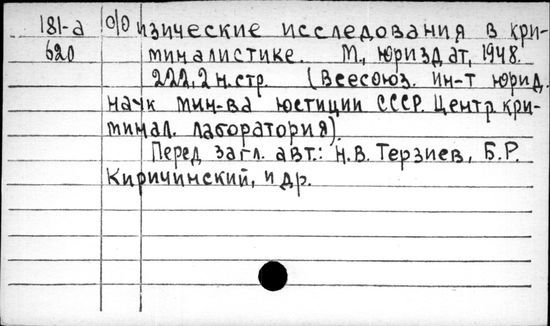 181-а Физические исследования в кри-
620 миналистике. М., Юриздат, 1948.
222, 2 н.стр. (Всесоюз. ин-т юрид.
наук мин-ва юстиции СССР. Центр кри-
минал. лаборатория).
Перед загл. авт.: Н.В. Терзиев, Б.Р.
Киричинский, и др.